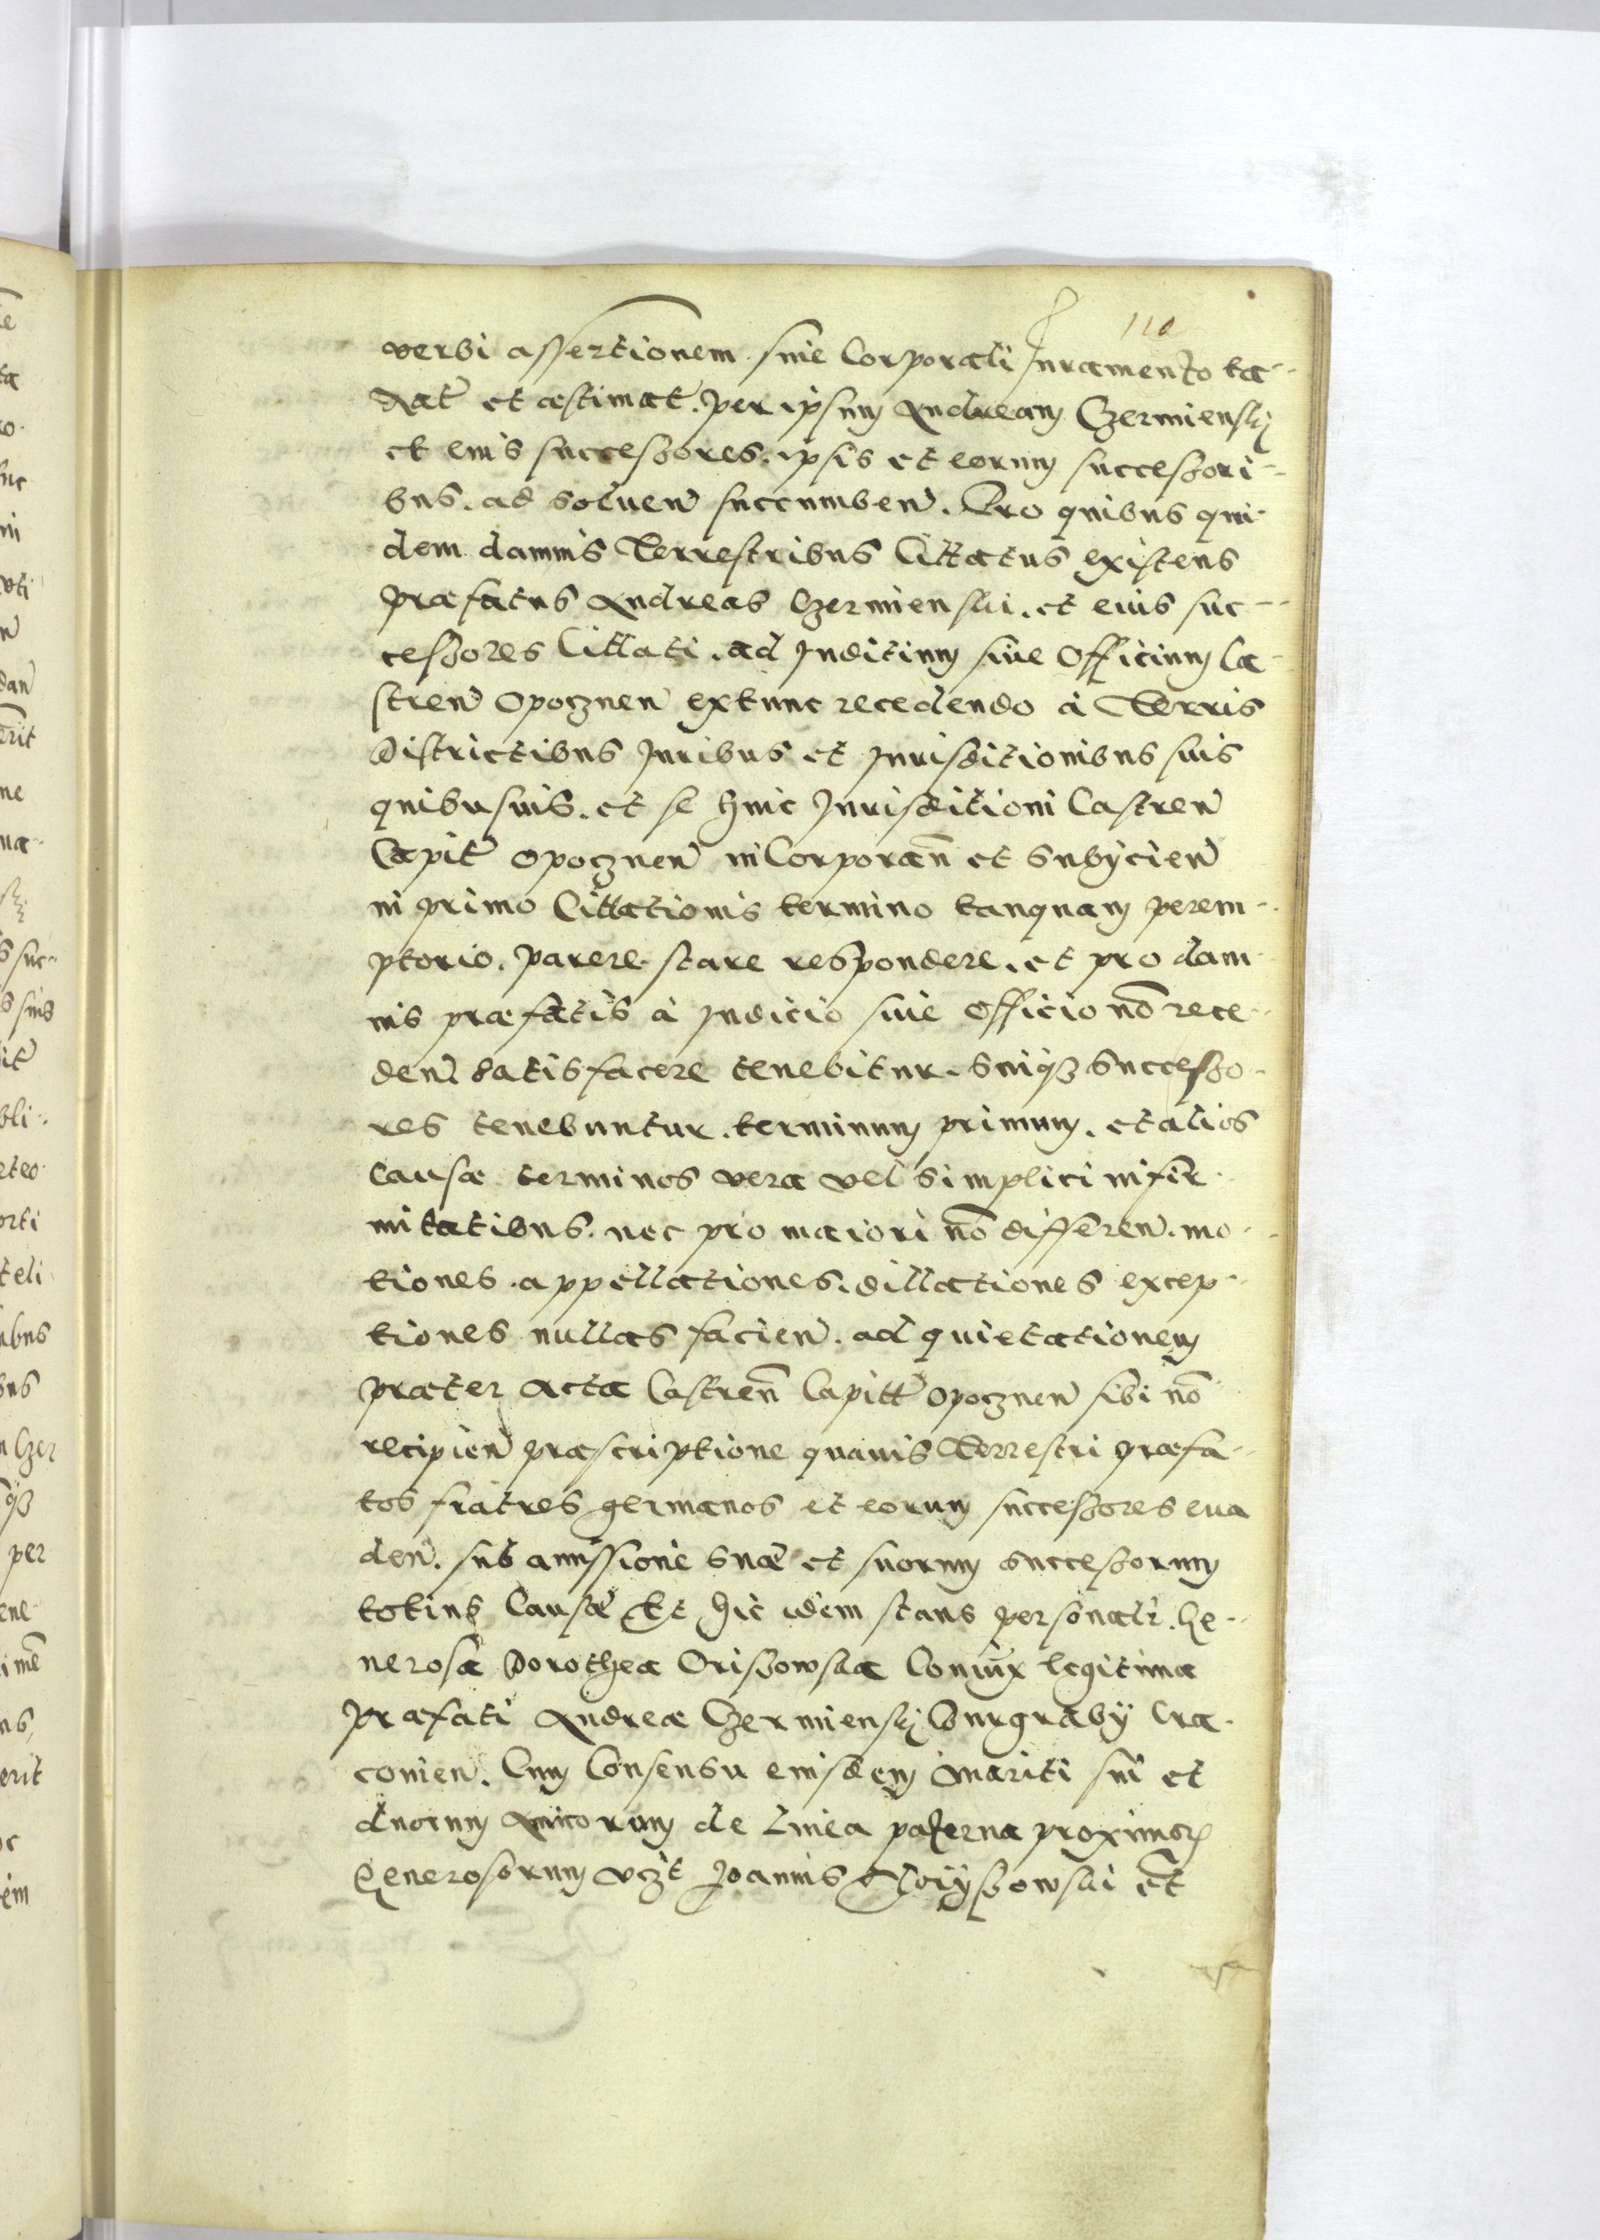 110
verbi assertionem sine Corporali Juramento ta-
xat et æstimat. per ipsum Andream Czermiensky
et eius successores. ipsis et eorum successori-
bus. ad soluen succumben. Pro quibus qui-
dem damnis Terrestribus Cittatus existens
præfatus Andreas Czermienski. et eius suc-
cessores Cittati. ad Juditium siue Officium Ca-
stren Opocznen extunc recedendo à Terris
Districtibus Juribus et Jurisditionibus suis
quibusuis. et se huic Jurisditioni Castren
Capit Opocznen inCorporan et Subÿcien
in primo Cittationis termino tanquam perem-
ptorio. parere stare respondere. et pro dam-
nis præfatis à Judicio siue Officio nō rece-
den. satisfacere tenebitur. Suiqз Successo-
res tenebuntur. terminum primum. et alios
Causæ terminos vera vel simplici infir-
mitatibus. nec pro maiori nō differen. mo-
tiones. appellationes. dillationes excep-
tiones nullas facien. ad quietationem
præter Acta Castren Capitt Opocznen sibi nō
recipien præscriptione quauis Terrestri præfa-
tos fratres germanos et eorum successores eua
den. sub amissione suæ et suorum successorum
totius Causæ Et hic idem stans personalr. Ge-
nerosa Dorothea Oriszowska Coniux legitima
præfati Andreæ Czermiensky Burgrabÿ Cra-
couien. Cum Consensu eiusdem Mariti sui et
duorum Amicorum de Linea paterna proximor
Generosorum vczt Joannis Oriÿszowski et